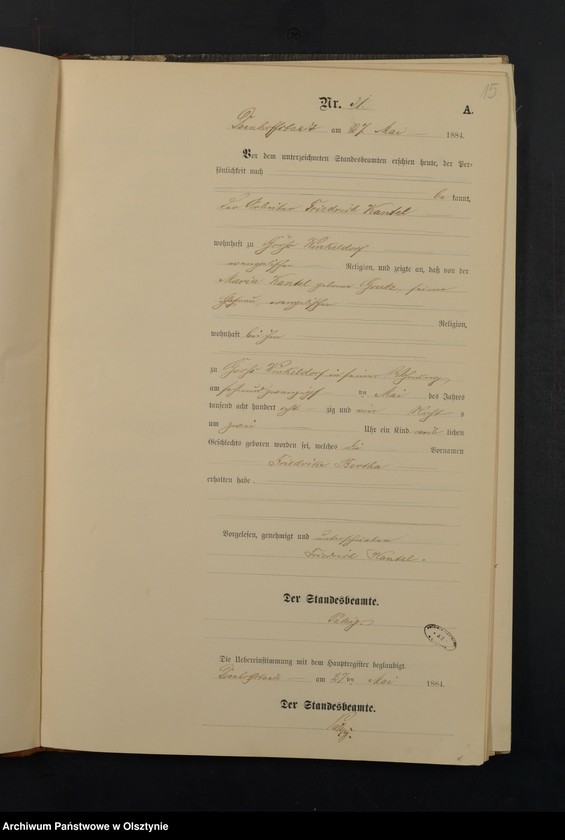 15
Nr. 31
A.
Doenhoffstaedt am 27 Mai 1884.
Vor dem unterzeichneten Standesbeamten erschien heute, der Per-
sönlichkeit nach
be kannt,
der Arbeiter Friedrich Kantel
wohnhaft zu Groß Winkeldorf
evangelischer Religion, und zeigte an, daß von der
Maria Kantel geborne seiner
Ehefrau, evangelischer
Religion,
wohnhaft bei ihm
zu Groß Winkeldorf in seiner Wohnung
am ten Mai des Jahres
tausend acht hundert acht zig und vier Nachts
um zwei Uhr ein Kind lichen
Geschlechts geboren worden sei, welches die Vornamen
Friedrike Bertha
erhalten habe.
Vorgelesen, genehmigt und unterschrieben
Friedrich Kantel.
Der Standesbeamte.
Die Uebereinstimmung mit dem Hauptregister beglaubigt.
Doenhoffstaedt am 27ten Mai 1884.
Der Standesbeamte.
Archiwum Państwowe w Olsztynie